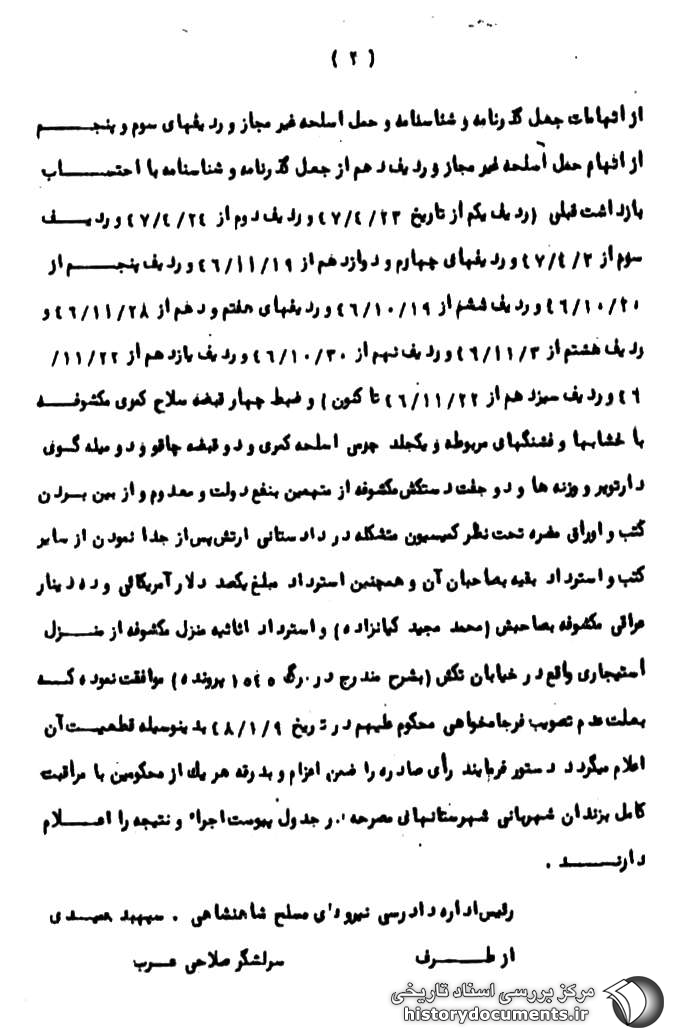 ( ۲ )
از اتهامات جعل گذرنامه و شناسنامه و حمل اسلحه غیر مجاز و ردیفهای سوم و پنجـــم
از اتهام حمل اسلحه غیر مجاز و ردیف دهم از جعل گذرنامه و شناسنامه با احتســـاب
بازداشت قبلی (ردیف یکم از تاریخ ۴۷/۴/۲۳ و ردیف دوم از ۴۷/۴/۲۴ و ردیـــف
سوم از ۴۷/۴/۲ و ردیفهای چهارم و دوازدهم از ۴۶/۱۱/۱۹ و ردیف پنجـــم از
۴۶/۱۰/۲۰ و ردیف ششم از ۴۶/۱۰/۱۹ و ردیفهای هفتم و دهم از ۴۶/۱۱/۲۸ و
ردیف هشتم از ۴۶/۱۱/۳ و ردیف نهم از ۴۶/۱۰/۳۰ و ردیف یازدهم از ۱۱/۲۲/
۴۶ و ردیف سیزدهم از ۴۶/۱۱/۲۲ تا کنون) و ضبط چهار قبضه سلاح کمری مکشوفـــه
با خشابها و فشنگهای مربوطه و یکجلد چرمی اسلحه کمری و دو قبضه چاقو و دو میله گوی
دار توپر و وزنه ها و دو جفت دستکش مکشوفه از متهمین بنفع دولت و معدوم و از بین بردن
کتب و اوراق مضره تحت نظر کمیسیون متشکله در دادستانی ارتش پس از جدا نمودن از سایر
کتب و استرداد بقیه بصاحبان آن و همچنین استرداد مبلغ یکصد دلار آمریکائی و ده دینار
عراقی مکشوفه بصاحبش (محمد مجید کیانزاده) و استرداد اثاثیه منزل مکشوفه از منـــزل
استیجاری واقع در خیابان تکش (بشرح مندرج در برگ ۱۵۴۵ پرونده) موافقت نموده کـــه
بعلت عدم تصویب فرجامخواهی محکوم علیهم در تاریخ ۴۸/۱/۹ بدینوسیله قطعیـــت آن
اعلام میگردد دستور فرمایند رأی صادره را ضمن اعزام و بدرقه هر یك از محکومین با مراقبت
کامل بزندان شهربانی شهرستانهائی مصرحه در جدول پیوست اجراء و نتیجه را اعـــلام
دارنـــد .
رئیس اداره دادرسی نیروهای مسلح شاهنشاهی . سپهبد
از طـــرف سرلشگر صلاحی عـــرب
مرکز بررسی اسناد تاریخی
historydocuments.ir